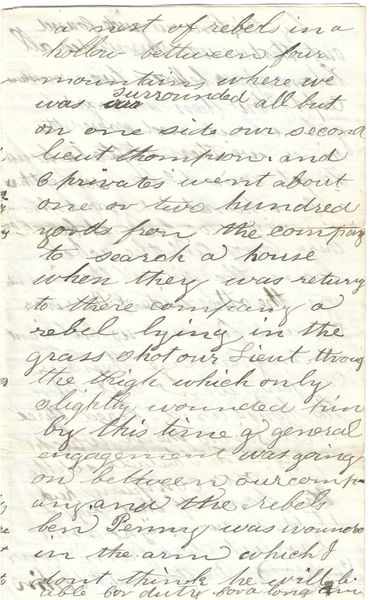 a nest of rebels in a
hollow between four
mountains where we
was surrounded all but
on one side our second
lieut thompson. and
6 privates went about
one or two hundred
yards from the company
to search a house
when they was returng
to there company a
rebel lying in the
grass shot our Lieut throug
the thigh which only
slightly wounded him
by this time a general
engagement was going
on between our comp-
any. and the rebels
ben Penny was wounded
in the arm which I
dont think he will be
able for duty for a long time